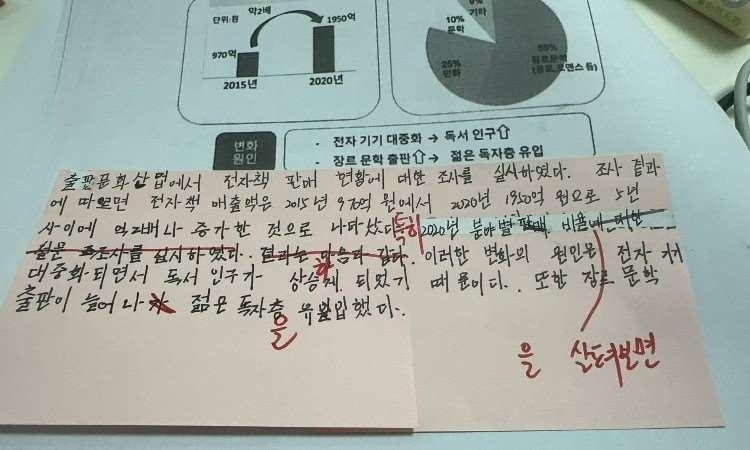 단위:원
약2배
1950억
970억
2015년
2020년
기타
10%
문학
25%
만화
장르문학
(공포,로맨스 등)
변화
원인
- 전자 기기 대중화 → 독서 인구⇧
- 장르 문학 출판⇧ → 젊은 독자층 유입
출판문화산업에서 전자책 판매 현황에 대한 조사를 실시하였다. 조사 결과
에 따르면 전자책 매출액은 2015년 970억 원에서 2020년 1950억 원으로 5년
사이에 약 2배나 증가한 것으로 나타났다. 특히 2020년 분야별 판매 비율에 대한
설문 조사를 실시하였다. 결과는 다음과 같다. 이러한 변화의 원인은 전자 기기
대중화되면서 독서 인구가 상승하게 되었기 때문이다. 또한 장르 문학
출판이 늘어나 젊은 독자층 유입했다.
을
을 살펴보면